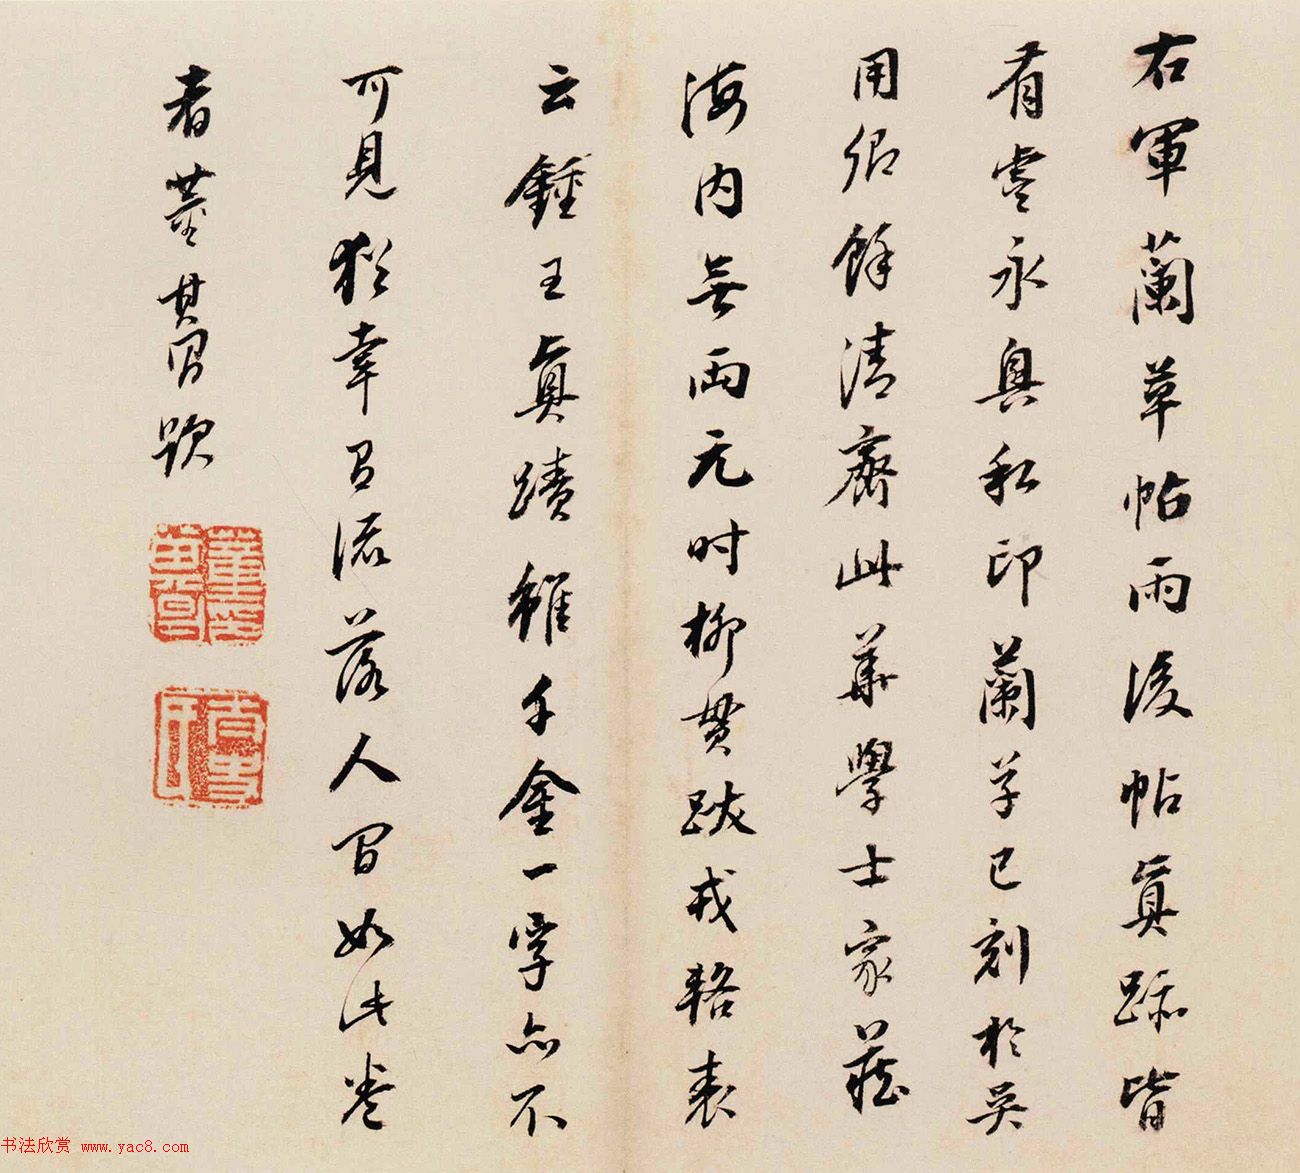 右軍蘭草帖雨後帖真跡皆
有虛永興私印蘭草已刻於吳
用卿餘清齋此華學士家藏
海内無兩元时柳貫跋戎輅表
云鍾王真蹟雖千金一字亦不
可見猶幸有流落人間如此卷
者董其昌跋
書法欣赏 www.yac8.com